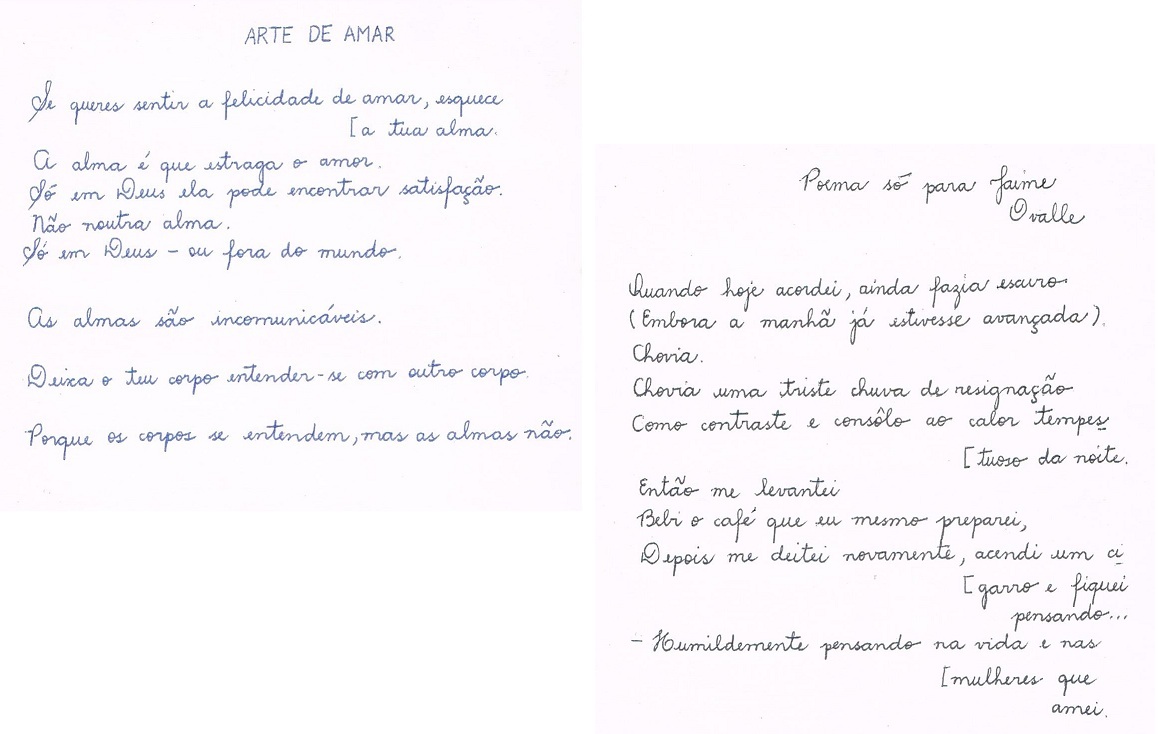 ARTE DE AMAR
Se queres sentir a felicidade de amar, esquece
[a tua alma.
A alma é que estraga o amor.
Só em Deus ela pode encontrar satisfação.
Não noutra alma.
Só em Deus - ou fora do mundo.
As almas são incomunicáveis.
Deixa o teu corpo entender-se com outro corpo.
Porque os corpos se entendem, mas as almas não.
Poema só para Jaime
Ovalle
Quando hoje acordei, ainda fazia escuro
(Embora a manhã já estivesse avançada).
Chovia.
Chovia uma triste chuva de resignação
Como contraste e consôlo ao calor tempes
[tuoso da noite.
Então me levantei
Bebi o café que eu mesmo preparei,
Depois me deitei novamente, acendi um ci
[garro e fiquei
pensando...
- Humildemente pensando na vida e nas
[mulheres que
amei.